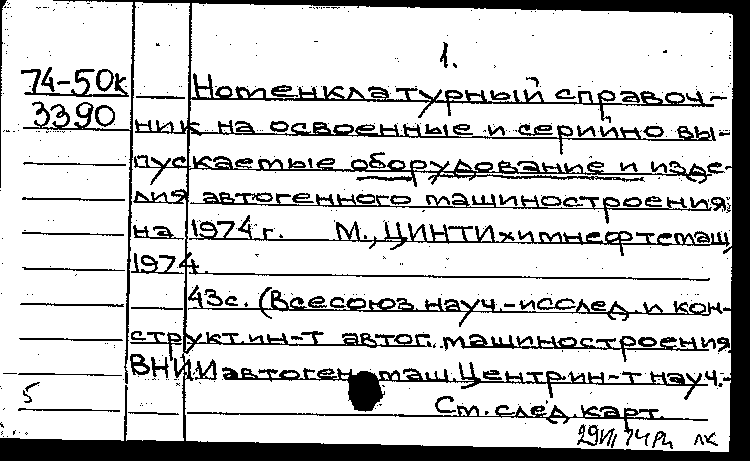 1.
74-50к
3390
Номенклатурный справоч-
ник на освоенные и серийно вы-
пускаемые оборудование и изде-
лия автогенного машиностроения
на 1974 г. М., ЦИНТИхимнефтемаш,
1974.
43с. (Всесоюз. науч.-исслед. и кон-
структ. ин-т автог. машиностроения
ВНИИавтогенмаш. Центр. ин-т науч.-
5
См. след. карт.
29 VII 74 РЦ ЛК